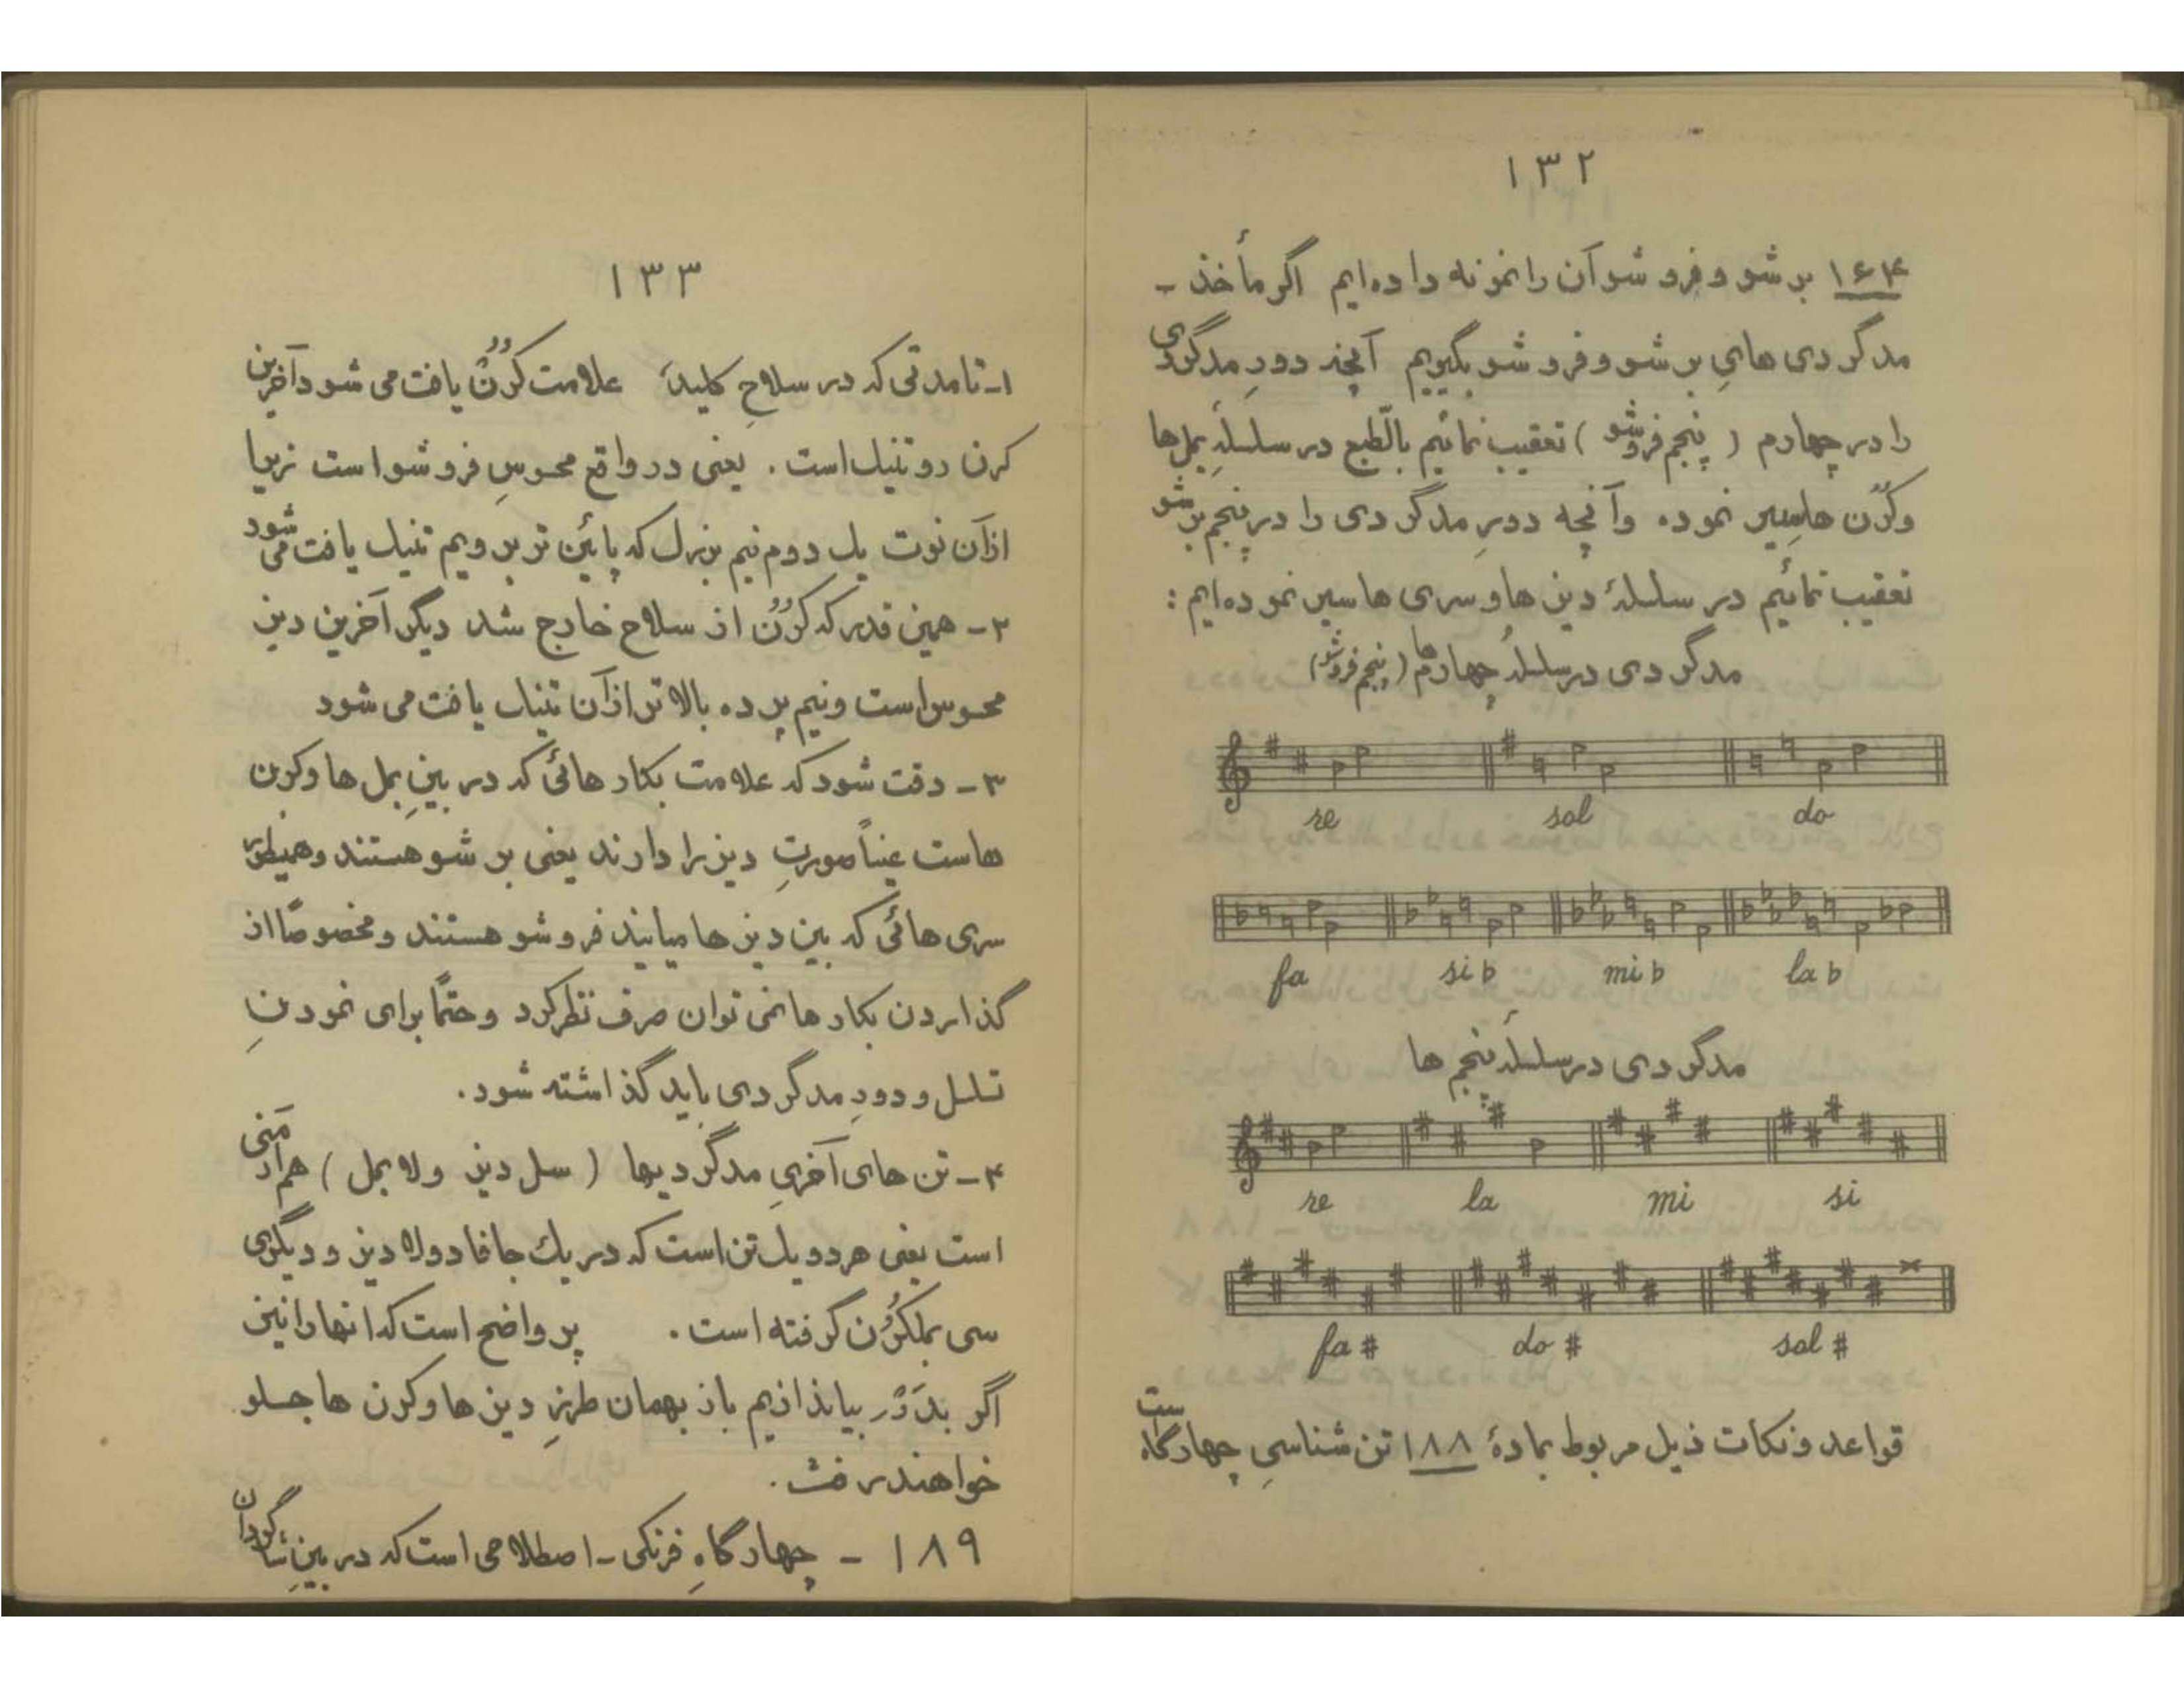 ۱۳۲
۱۶۴ بر شو و فرو شو آن را نمونه داده‌ایم اگر مأخذ -
مدگردی های بر شو و فرو شو بگیریم آنچه دور مدگردی
را در چهارم ( پنجم فروشو ) تعقیب نمائیم بالطّبع در سلسلهٔ بمل‌ها
و کُرُن ها سیر نموده و آنچه دور مدگردی را در پنجم بر شو
تعقیب نمائیم در سلسلهٔ دیز ها و سری ها سیر نموده‌ایم :
مدگردی در سلسلهٔ چهارم ها ( پنجم فروشو )
re sol do
fa si b mi b la b
مدگردی در سلسلهٔ پنجم ها
re la mi si
fa # do # sol #
قواعد و نکات ذیل مربوط بمادهٔ ۱۸۸ تن شناسیِ چهارگاه است
۱۳۳
۱- تا مدتی که در سلاحِ کلید علامت کُرُن یافت می شود آخرین
کرن رو تنیک است . یعنی در واقع محسوسِ فرو شو است زیرا
از آن نوت یک دوم نیم بزرگ که پائین تر برویم تنیک یافت می شود
۲- همین قدر که کُرُن از سلاح خارج شد دیگر آخرین دیز
محسوس است و نیم پرده بالاتر از آن تنیک یافت می شود
۳- دقت شود که علامت بکار هائی که در بینِ بمل ها و کرن
هاست عیناً صورتِ دیز را دارند یعنی بر شو هستند و همینطور
سری هائی که بین دیز ها میایند فرو شو هستند و مخصوصًا از
گذاردن بکار ها نمی توان صرف نظر کرد و حتمًا برای نمودنِ
تسلسل و دورِ مدگردی باید گذاشته شود.
۴- تن های آخریِ مدگردیها ( سل دیز و لا بمل ) هم آرمنی
است یعنی هر دو یک تن است که در یک جا فا دوبلا دیز و دیگری
سی بملکُرُن گرفته است . پر واضح است که انها را نیز
اگر بدَوْر بیاندازیم باز بهمان طرزِ دیز ها و کرن ها جلو
خواهند رفت.
۱۸۹ - چهارگاهِ فرنگی - اصطلاحی است که در بینِ شاگردان